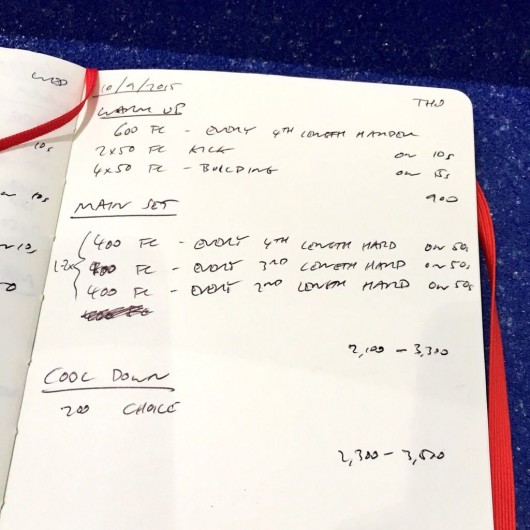 WED
10/9/2015
THU
WARM UP
600 FC - EVERY 4TH LENGTH HARDER
2x50 FC KICK ON 10s
4x50 FC - BUILDING ON 15s
900
MAIN SET
1-2x
400 FC - EVERY 4TH LENGTH HARD ON 50s
400 FC - EVERY 3RD LENGTH HARD ON 50s
400 FC - EVERY 2ND LENGTH HARD ON 50s
2,100 - 3,300
COOL DOWN
200 CHOICE
2,300 - 3,500
10s
ON 10s
ON 10s